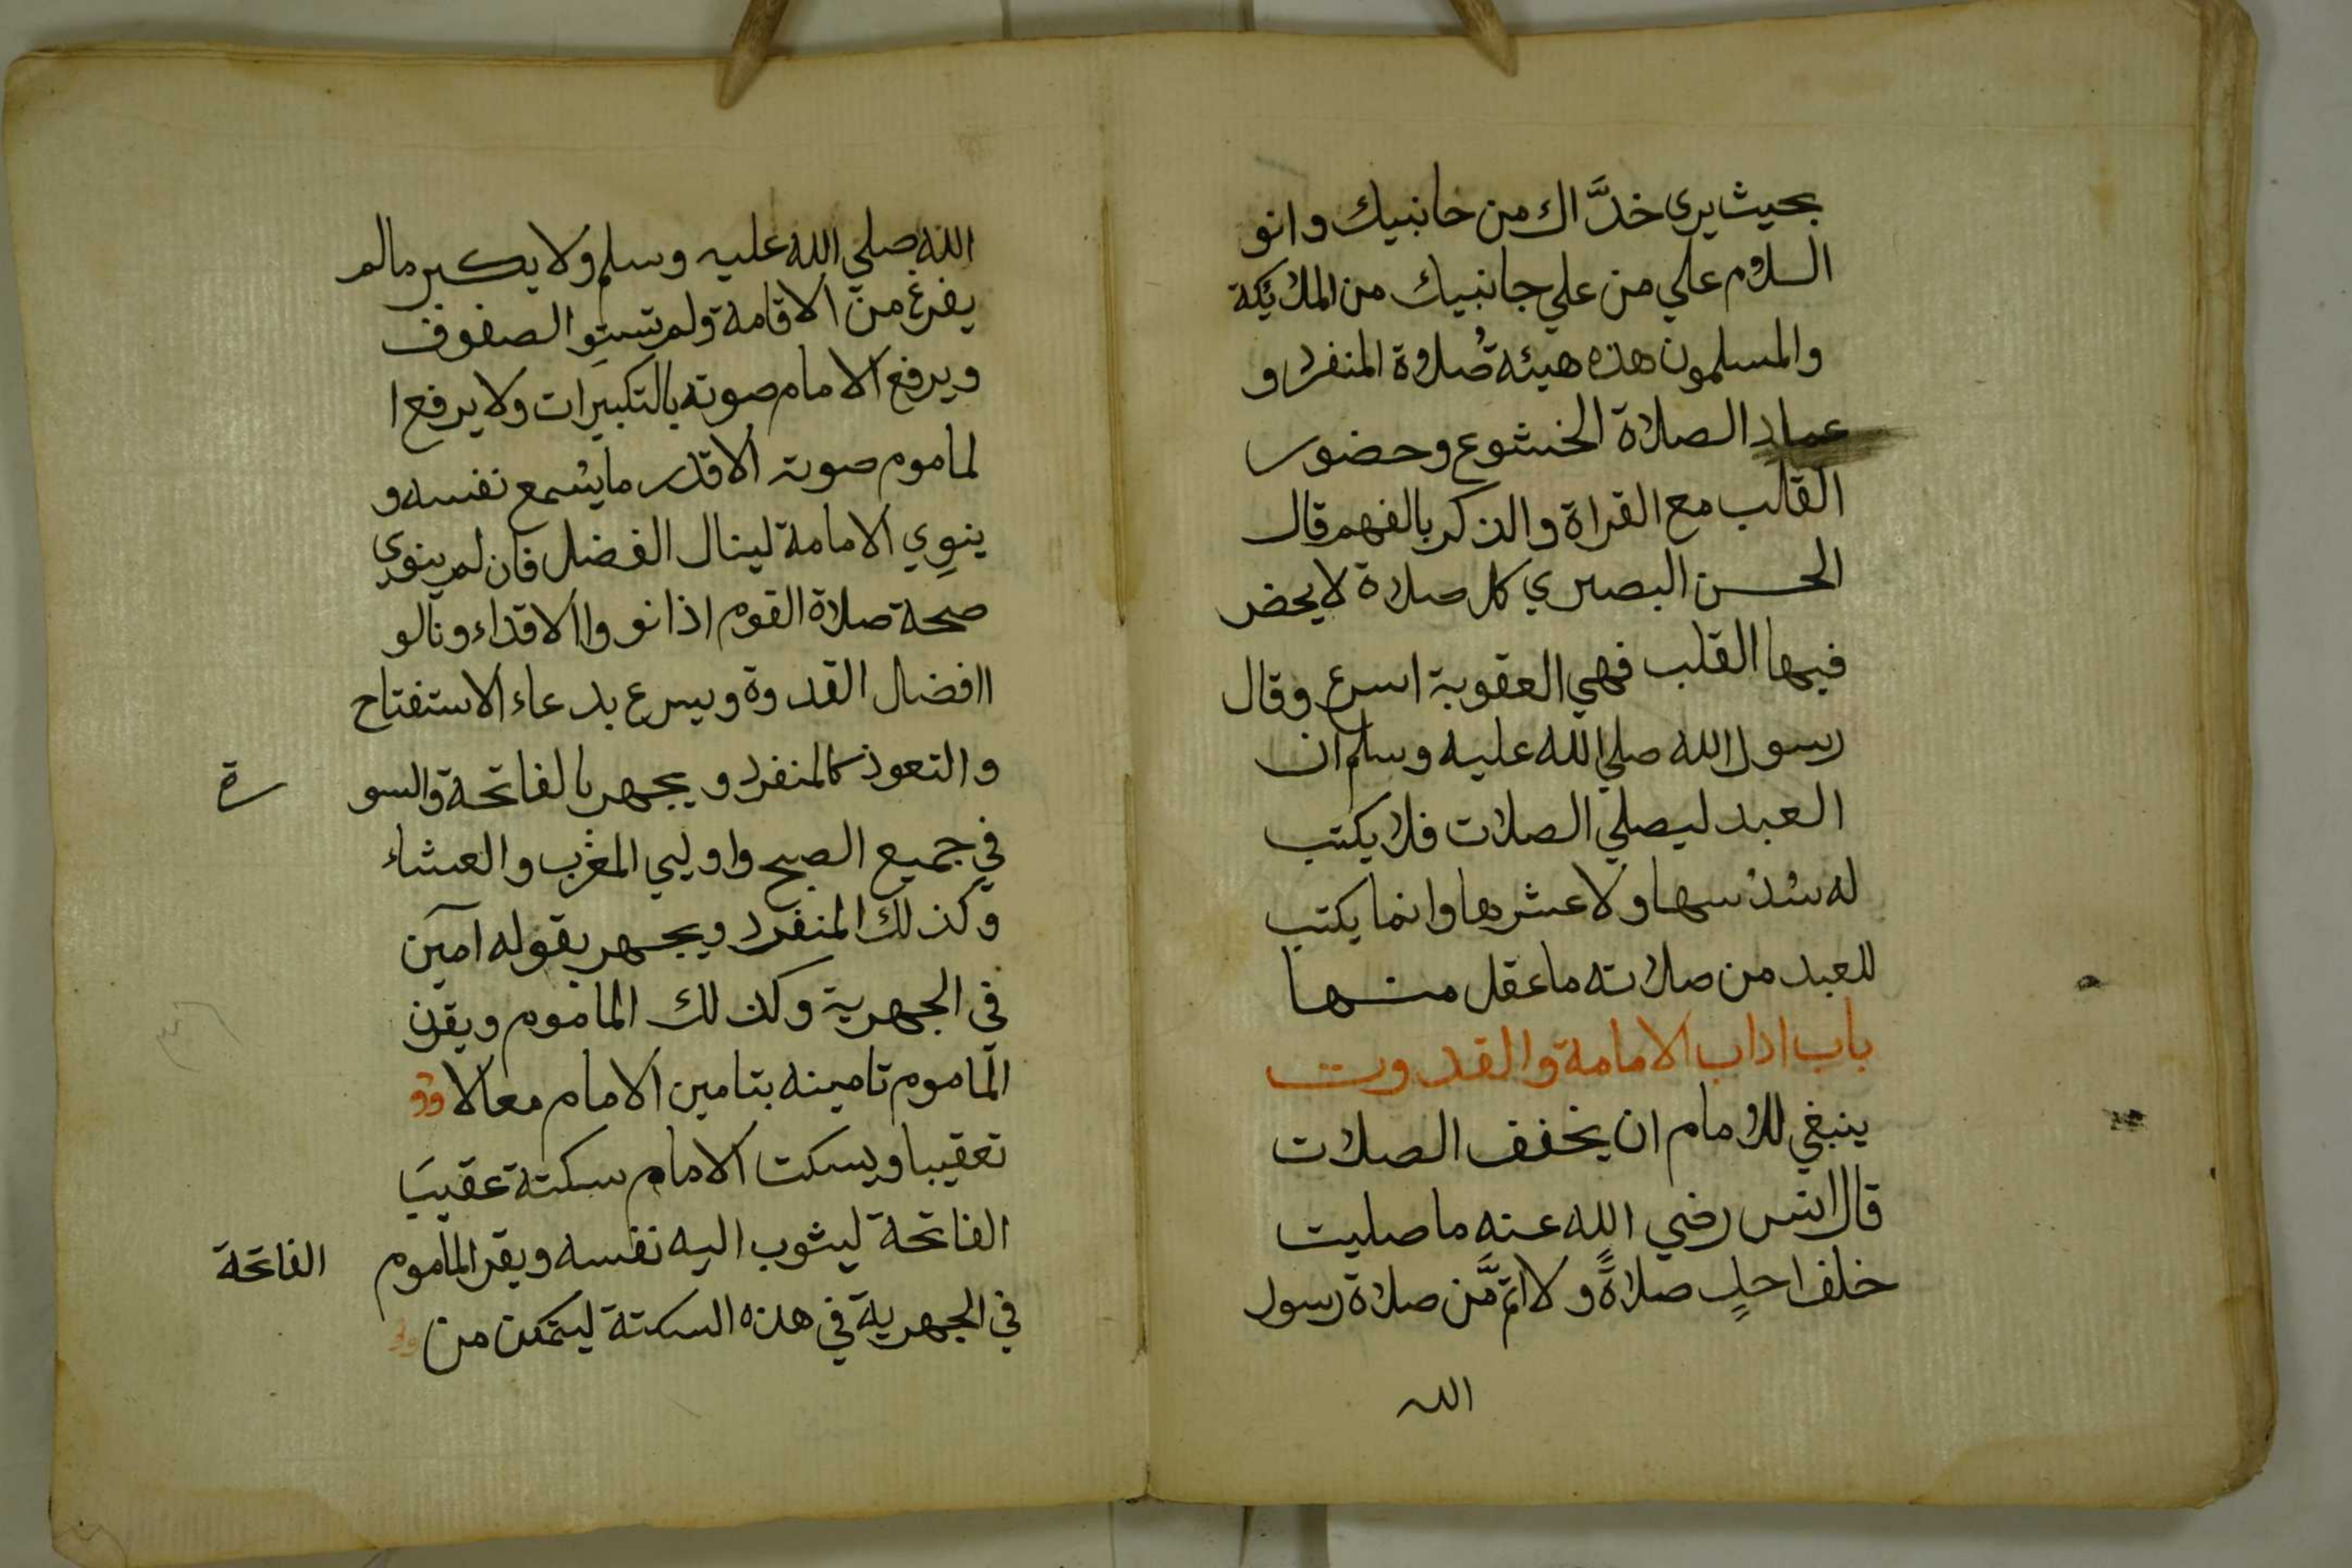 بحيث يرى خدَّاك من خانبيك وانو
السلام علي من علي جانبيك من الملائكة
والمسلمون هذه هيئة صُلاة المنفرد و
عماد الصلاة الخشوع وحضور
القالب مع القراة والذكر بالفهم قال
الحسن البصري كل صلاة لا يحضر
فيها القلب فهي العقوبة اسرع وقال
رسول الله صلي الله عليه وسلم ان
العبد ليصلي الصلات فلا يكتب
له سُدْسها ولا عشرها وانما يكتب
للعبد من صلاته ما عقل منها
باب اداب الامامة والقدوت
ينبغي للامام ان يخفف الصلات
قال انس رضي الله عنه ما صليت
خلف احدٍ صلاةً ولا اتمَّ من صلاة رسول
الله
الله صلي الله عليه وسلم ولا يكبر مالم
يفرغ من الاقامة ولم تستوِ الصفوف
ويرفع الامام صوته بالتكبيرات ولا يرفع ا
لماموم صوته الاقدر ما يسُمع نفسه و
ينوِي الامامة لينال الفضل فان لم ينوي
صحة صلاة القوم اذا نووا الاقداء ونالو
اافضال القدوة ويسرع بدعاء الاستفتاح
والتعوذ كالمنفرد ويجهر بالفاتحة والسو رة
في جميع الصبح واوليي المغرب والعشاء
وكذلك المنفرد ويجهر بقوله آمين
في الجهرية وكذلك الماموم ويقرن
الماموم تامينه بتامين الامام معا لا
تعقيبا ويسكت الامام سكتة عقيبَ
الفاتحة ليثوب اليه نفسه ويقر الماموم الفاتحة
في الجهرية في هذه السكتة ليتمكن من